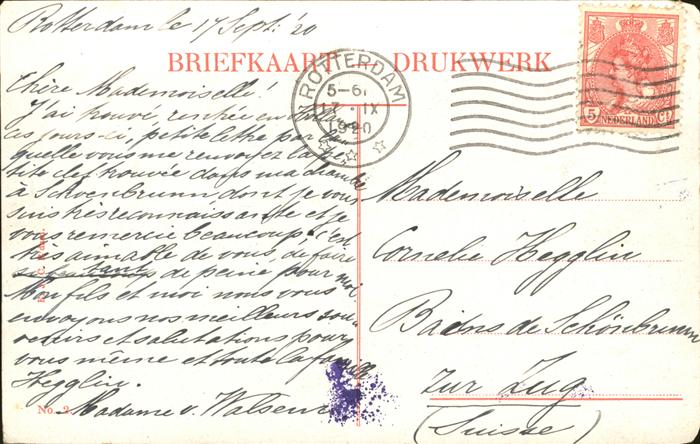 Rotterdam le 17 Sept. '20
BRIEFKAART DRUKWERK
ROTTERDAM
5-6
17 IX
1920
5 NEDERLAND Ct
Chère Mademoiselle!
J'ai trouvé, rentrée en
ces jours-ci, petite lettre par la
quelle vous me renvoyez la pe
tite clef trouvée dans ma chambre
à Schoenbrunn, dont je vous
suis très reconnaissante et je
vous remercie beaucoup. C'est
très aimable de vous, de faire
tant de peine pour moi
Mon fils et moi nous vous
envoyons nos meilleurs sou
venirs et salutations pour
vous même et toute la famille
Hegglin.
Madame v. Walsem
No. 2
Mademoiselle
Cornelie Hegglin
Bains de Schönbrunn
zur Zug
(Suisse)